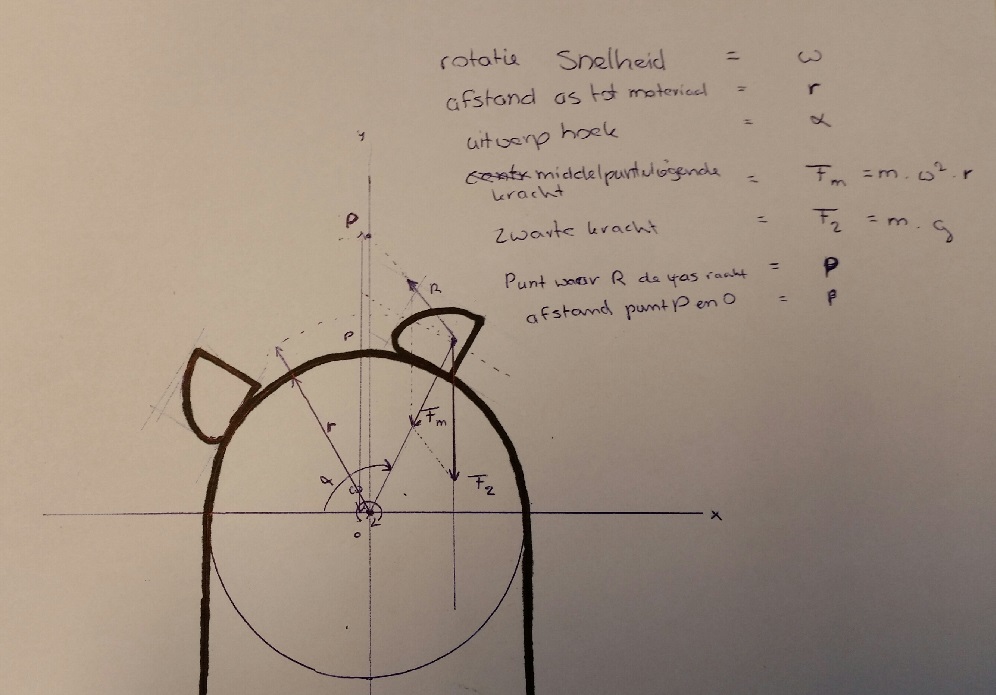 rotatie Snelheid = ω
afstand as tot materiaal = r
uitwerp hoek = α
middelpuntvliegende kracht = Fm = m . ω² . r
zwarte kracht = Fz = m . g
Punt waar R de y as raakt = P
afstand punt P en O = p
y
P
R
P
r
Fm
α
ω
Fz
x
o